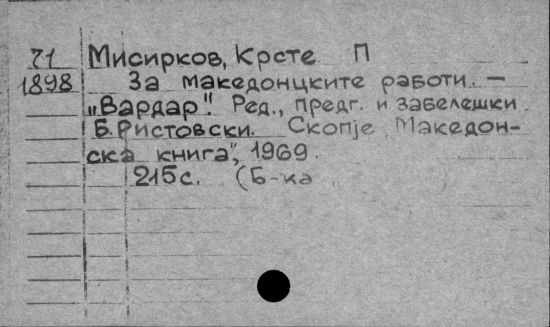 71 Мисирков, Крсте П
1898 За македонцките работи. –
„Вардар". Ред., предг. и забелешки
Б. Ристовски. Скопје, „Македон-
ска книга", 1969.
215с. (Б-ка